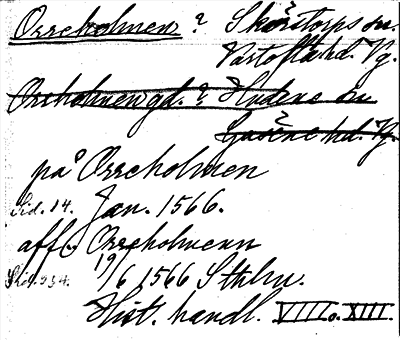 Orreholmen ? Skörstorps sn.
Vartofta hd. Vg.
Orreholmen gd. ? Hudene sn
Gäsene hd. Vg.
på Orreholmen
Sid. 14. Jan. 1566.
aff. Orreholmenn
Sid. 234. 19/6 1566 Sthlm.
Hist. handl. VIII o. XIII.